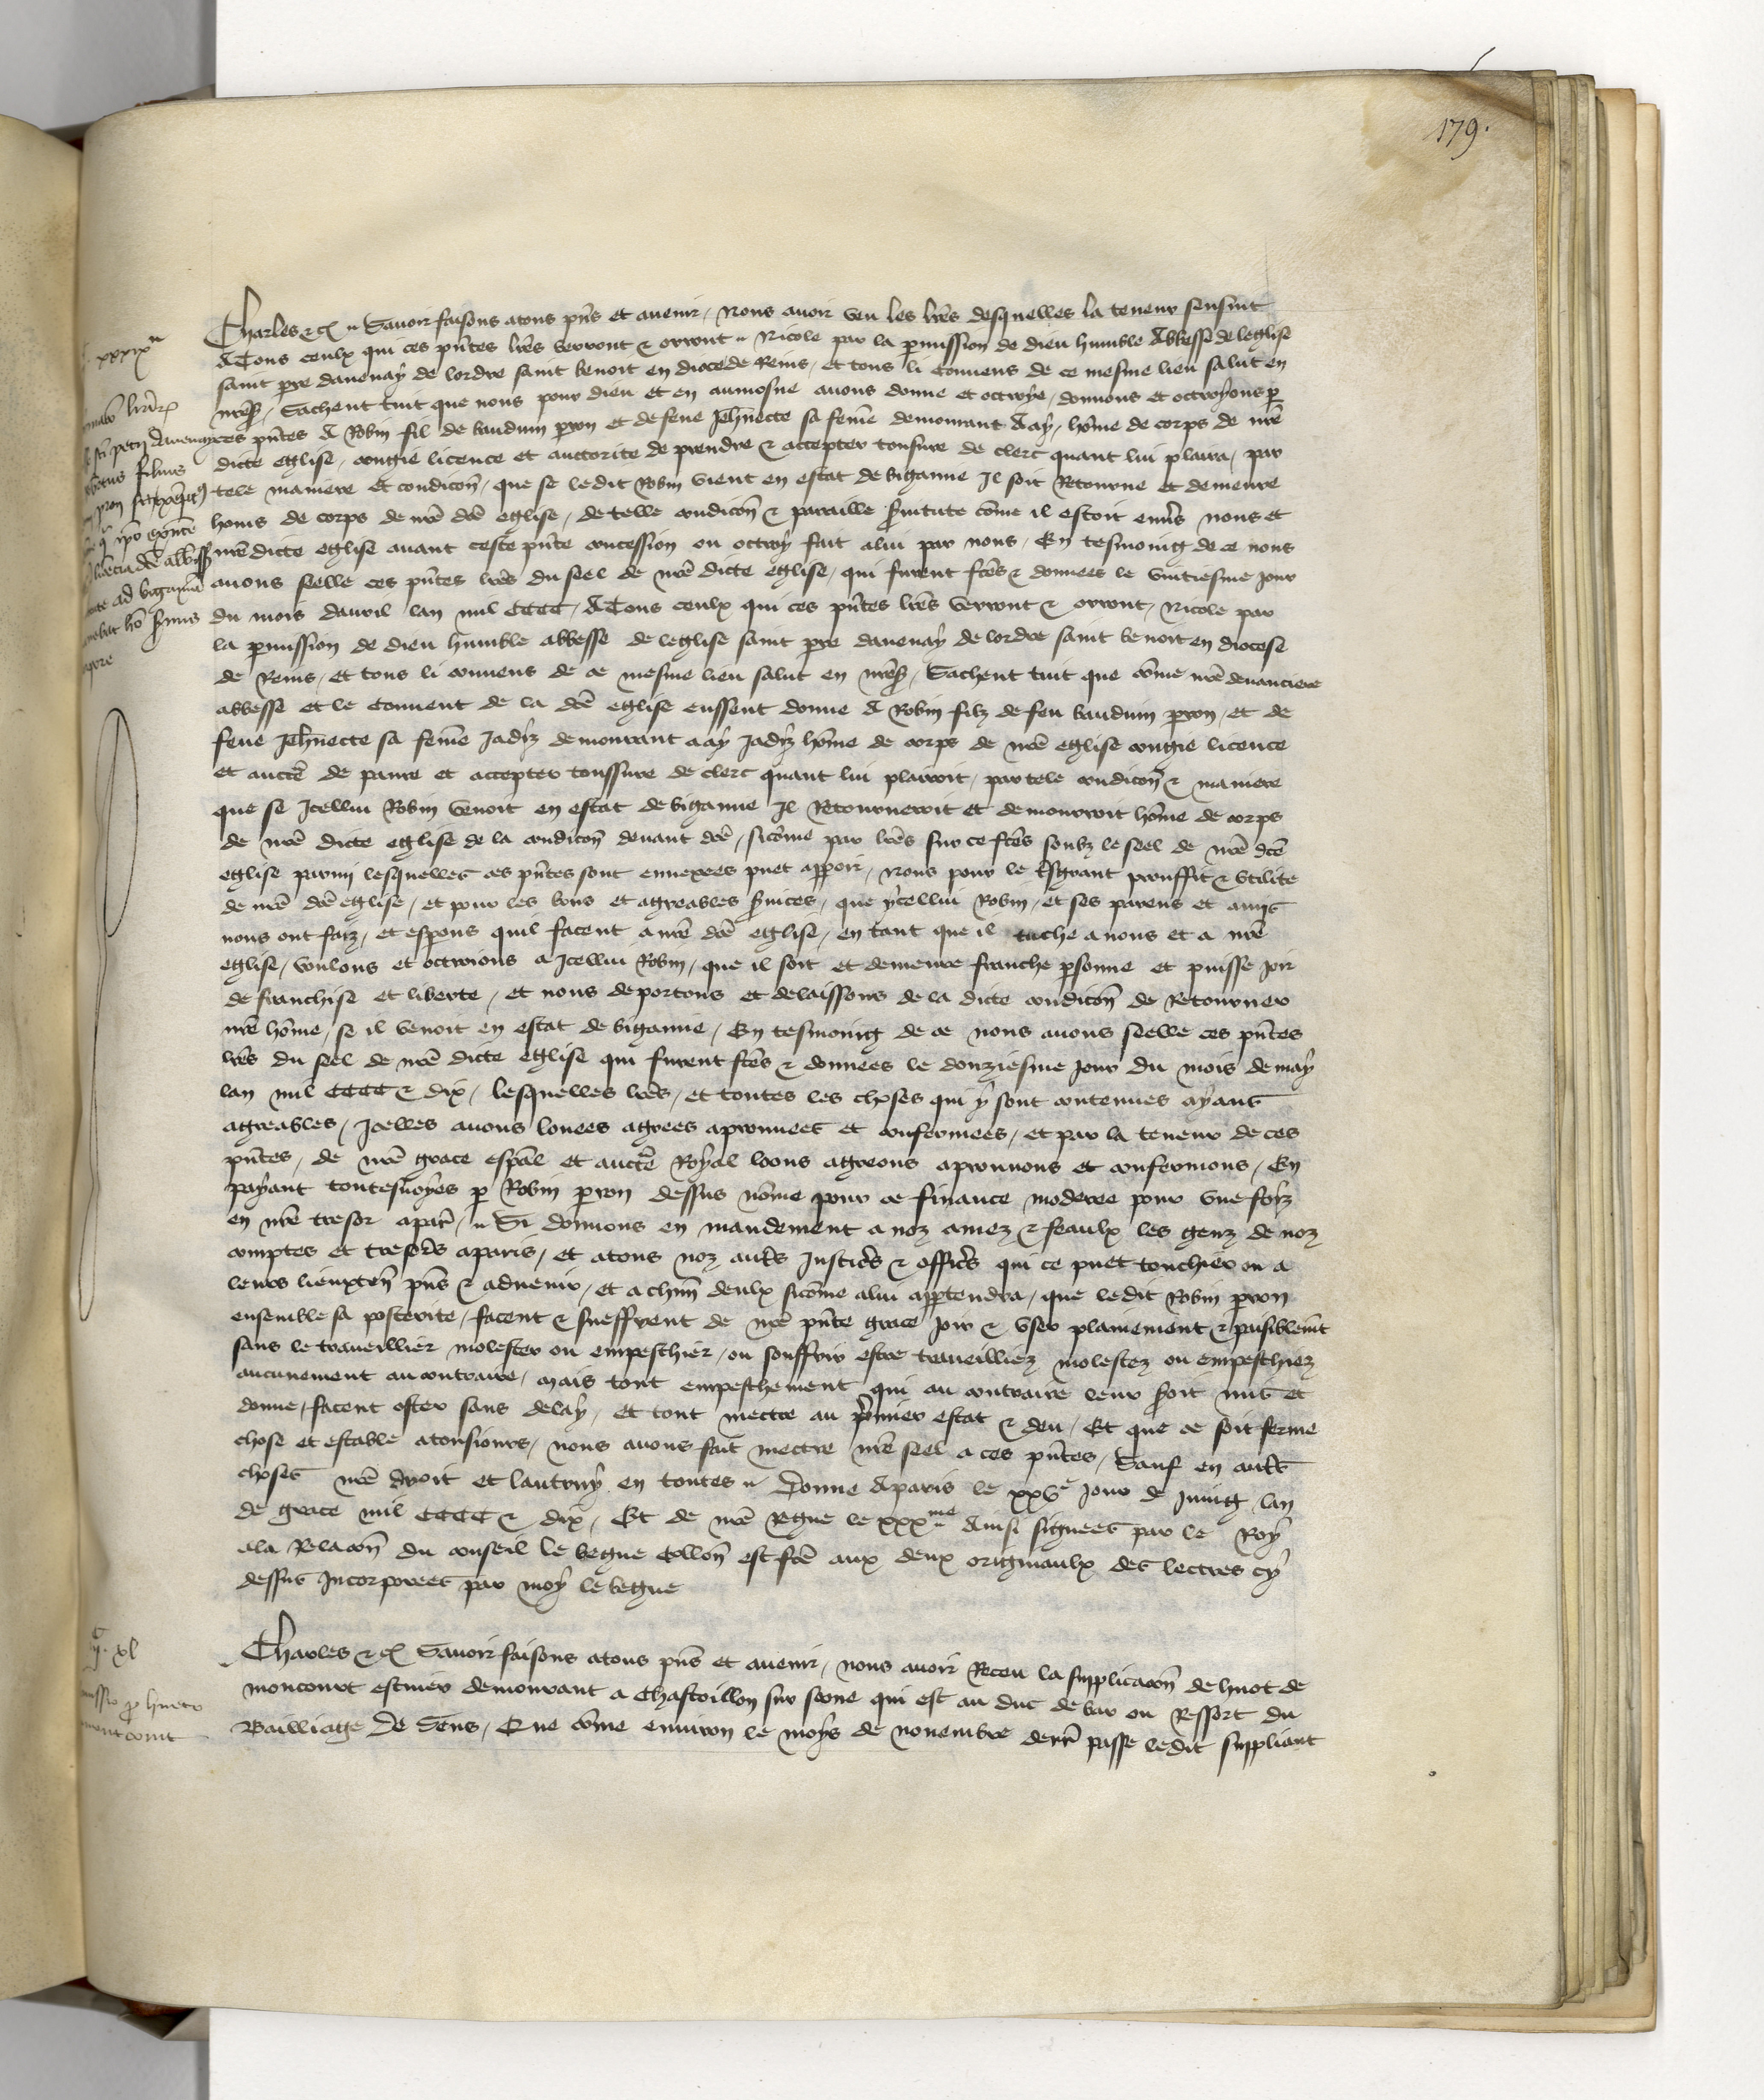 179.
xxxix
Charles etc. Savoir faisons a tous pñs et avenir, Nous avoir veu les lres desquelles la teneur sensuit
A Tous ceulx qui ces pñtes lres verront & orront Nicole par la pmission de dieu humble Abbesse de leglise
saint pere davenay de lordre saint benoit en diocese de Reins, et tous li convens de ce mesme lieu salut en
nre sr, Sachent tuit que nous pour dieu et en aumosne avons donne et octroye, donnons et octroyons p
ces pñtes A Robin fil de bauduin pron et de feue Jehñecte sa feme demourant A ay, hõme de corps de nre
dicte eglise, congie licence et auctorite de prendre & accepter tonsure de clerc quant lui plaira, par
tele maniere et condicõn, que se ledit Robin vient en estat de bigamie Il soit Retourne et demeure
homs de corps de nre dce eglise, de telle condicõn & pareille svitute cõme il estoit envs nous et
nre dicte eglise avant ceste pñte concession ou octroy fait a lui par nous, En tesmoing de ce nous
avons seelle ces pñtes lres du seel de nre dicte eglise, qui furent fces & donnees le vintiesme jour
du mois davril lan mil CCCC, A Tous ceulx qui ces pñtes lres verront & orront, Nicole par
la pmission de dieu humble abbesse de leglise saint pere davenay de lordre saint benoit en diocese
de Reins, et tous li convens de ce mesme lieu salut en nre sr, Sachent tuit que cõme nre devanciere
abbesse et le convent de la dce eglise eussent donne A Robin filz de feu bauduin pron, et de
feue Jehñecte sa feme Jadiz demourant a ay Jadiz hõme de corps de nre eglise congie licence
et aucte de panre et accepter toussure de clerc quant lui plairoit, par tele condicõn & maniere
que se Icellui Robin venoit en estat de bigamie Il Retourneroit et demourroit hõme de corps
de nre dicte eglise de la condicõn devant dce, sicõme par lres sur ce fces soubz le seel de nre dce
eglise parmi lesquelles ces pñtes sont ennexees puet apparoir, Nous pour le tsgrant prouffit & utilite
de nre dce eglise, et pour les bons et agreables svices, que ycellui Robin, et ses parens et amis
nous ont faiz, et espons quil facent a nre dce eglise, en tant que il touche a nous et a nre
eglise, voulons et octroions a Icellui Robin, que il soit et demeure franche psonne et puisse joir
de franchise et liberte, et nous deportons et delaissons de la dicte condicõn de Retourner
nre hõme, se il venoit en estat de bigamie, En tesmoing de ce nous avons seelle ces pñtes
lres du seel de nre dicte eglise qui furent fces & donnees le douziesme jour du mois de may
lan mil CCCC & dix, lesquelles lres, et toutes les choses qui y sont contenues ayans
agreables, Icelles avons louees agrees aprouvees et confermees, et par la teneur de ces
pñtes, de nre grace espal et aucte Royal loons agreons aprouvons et confermons, En
payant toutesvoyes p Robin pron dessus nõme pour ce finance moderee pour une foiz
en nre tresor a par, Si donnons en mandement a noz amez & feaulx les genz de noz
comptes et tresors a paris, et a tous noz auts Justicrs & officrs qui ce puet touchier ou a
leurs lieuxten pñs & advenir, et a chun deulx sicõme a lui apptendra, que ledit Robin pron
ensemble sa posterite, facent & sueffrent de nre pñte grace joir & user plainement & paisiblemt
sans le traveillier molester ou empeschier, ou souffrir estre traveilliez molestez ou empeschiez
aucunement au contraire, mais tout empeschement qui au contraire leur soit mis et
donne, facent oster sans delay, et tout mectre au pmier estat & deu, Et que ce soit ferme
chose et estable a tousiours, nous avons fait mectre nre seel a ces pñtes, Sauf en auts
choses nre droit et lautruy en toutes, Donne A paris le xxve jour de juing lan
de grace mil CCCC & dix, Et de nre Regne le xxxme Ainsi signees par le Roy
a la Relacõn du conseil le begue Collon est fce aux deux originaulx des lectres cy
dessus Incorporees par moy le begue
xl
Charles etc. Savoir faisons a tous pñs et avenir, nous avoir Receu la supplicacõn de huot de
moncourt escuier demourant a Chastoillon sur sone qui est au duc de bar ou Ressort du
Bailliage de Sens, Que cõme environ le moys de novembre derr passe ledit suppliant